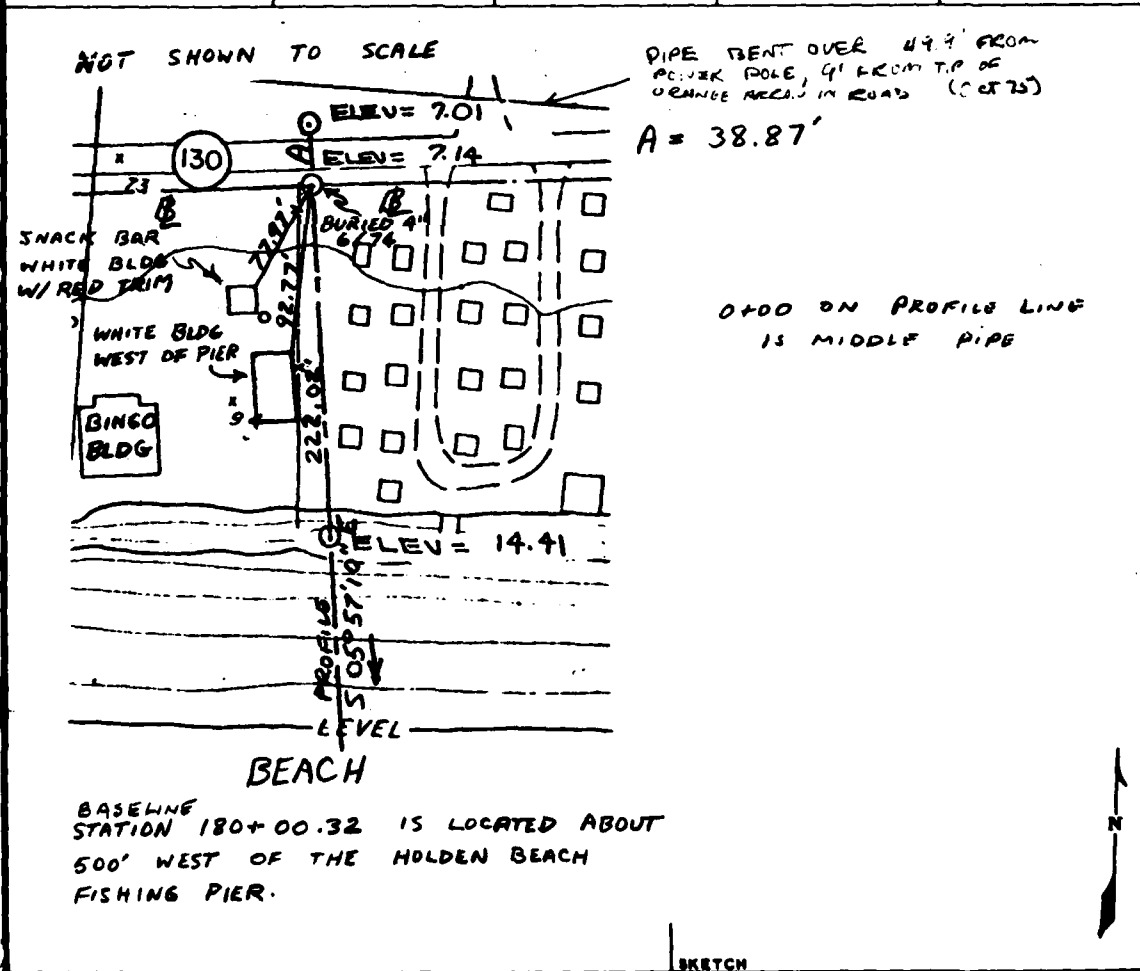 NOT SHOWN TO SCALE
PIPE BENT OVER 49.9' FROM
POWER POLE, 9' FROM TIP OF
ORANGE ARROW IN ROAD (Oct 75)
A = 38.87'
ELEV= 7.01
A
ELEV= 7.14
130
x
23
B
B
BURIED 4"
6/74
SNACK BAR
WHITE BLDG
W/ RED TRIM
92.77'
WHITE BLDG
WEST OF PIER
222.02'
x
9
BINGO
BLDG
0+00 ON PROFILE LINE
IS MIDDLE PIPE
ELEV= 14.41
PROFILE
S 05° 57' 19" E
LEVEL
BEACH
BASELINE
STATION 180+00.32 IS LOCATED ABOUT
500' WEST OF THE HOLDEN BEACH
FISHING PIER.
N
SKETCH